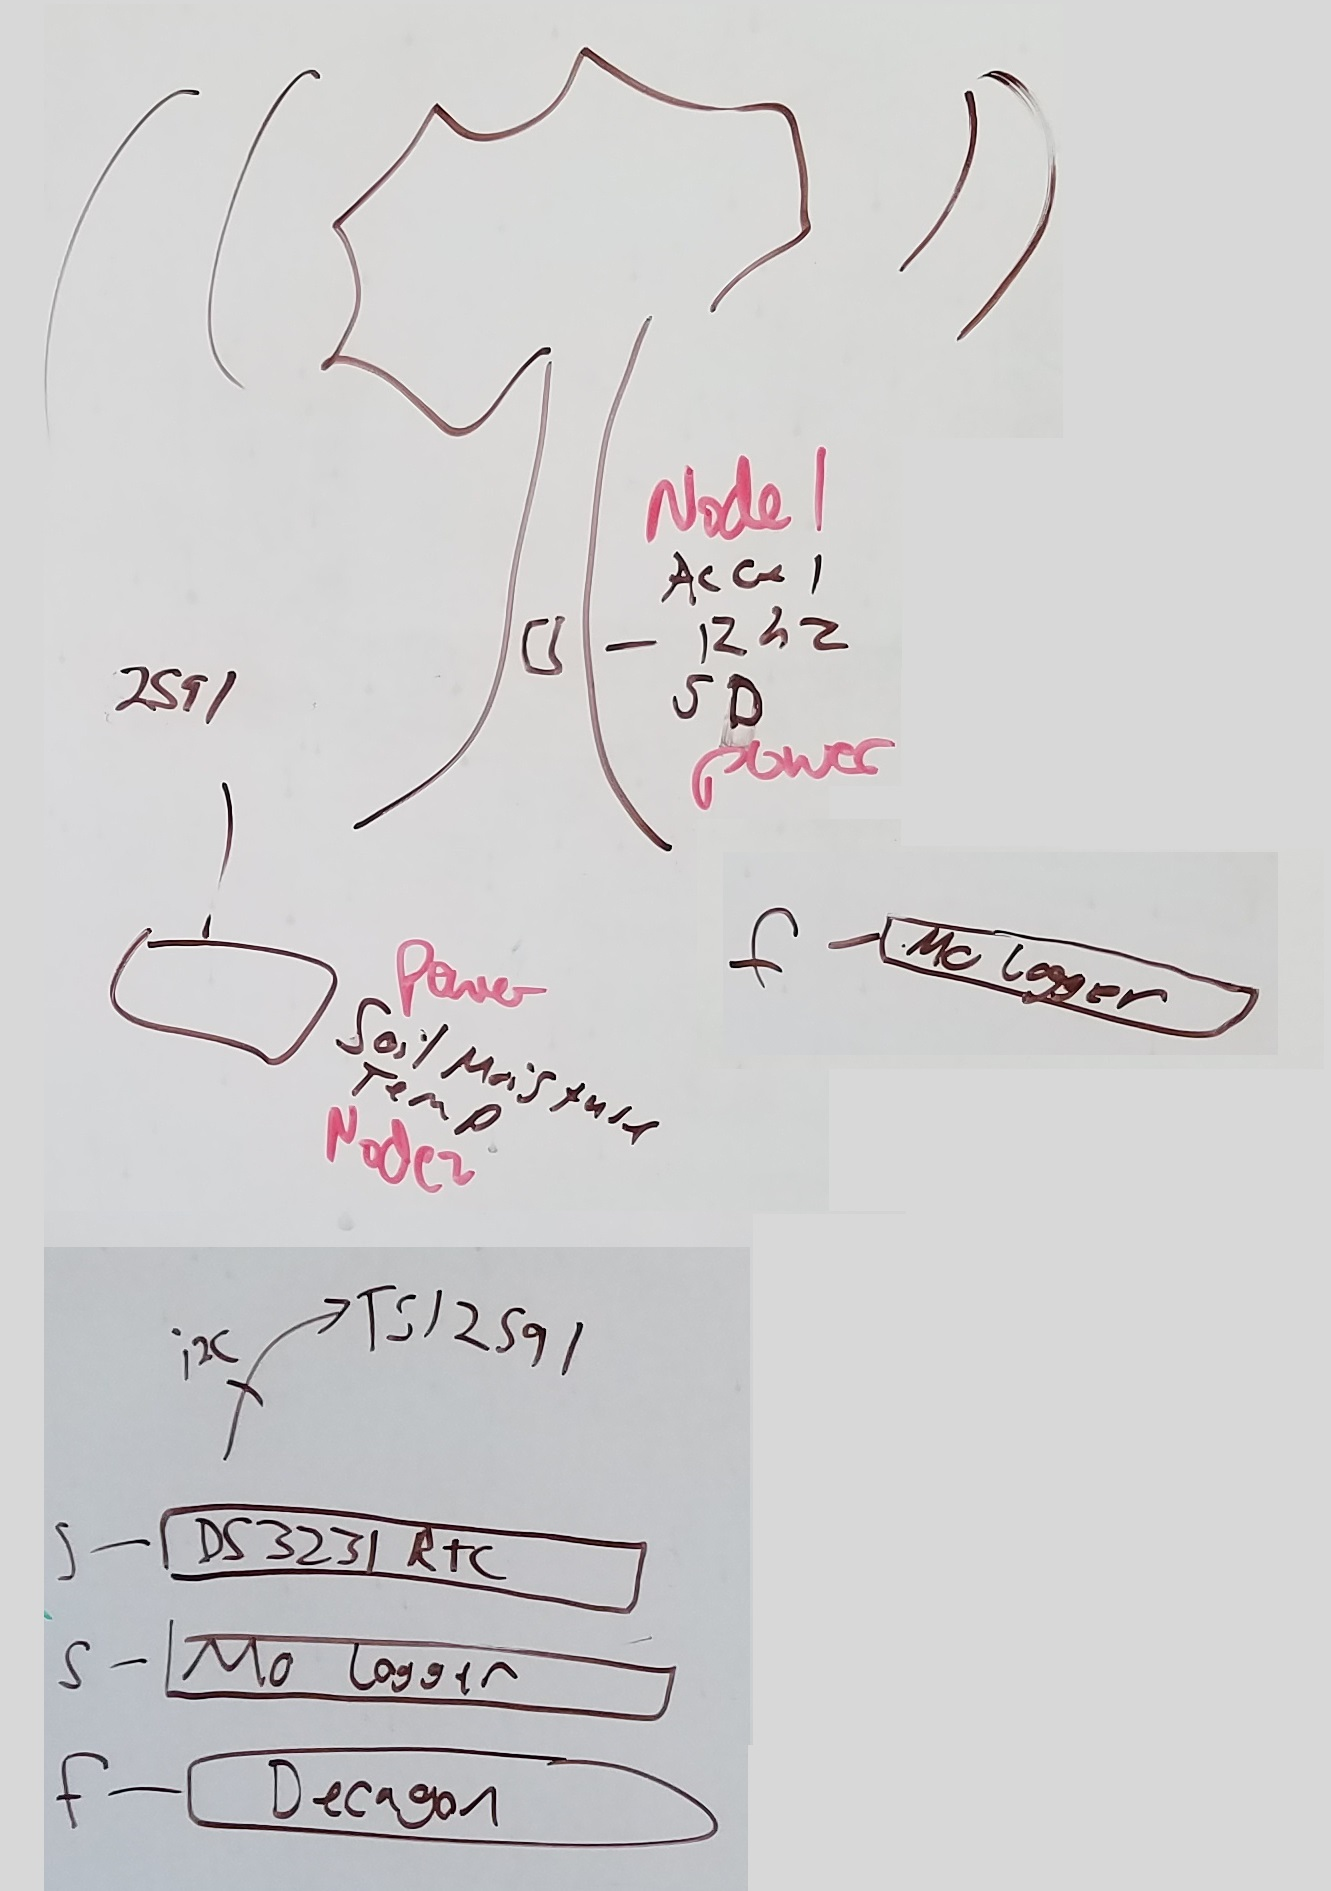 Node 1
Accel
12hz
SD
power
2591
f
M0 Logger
Power
Soil Moisture
Temp
Node2
i2c
TSl2591
S
DS3231 RTC
S
M0 Logger
f
Decagon